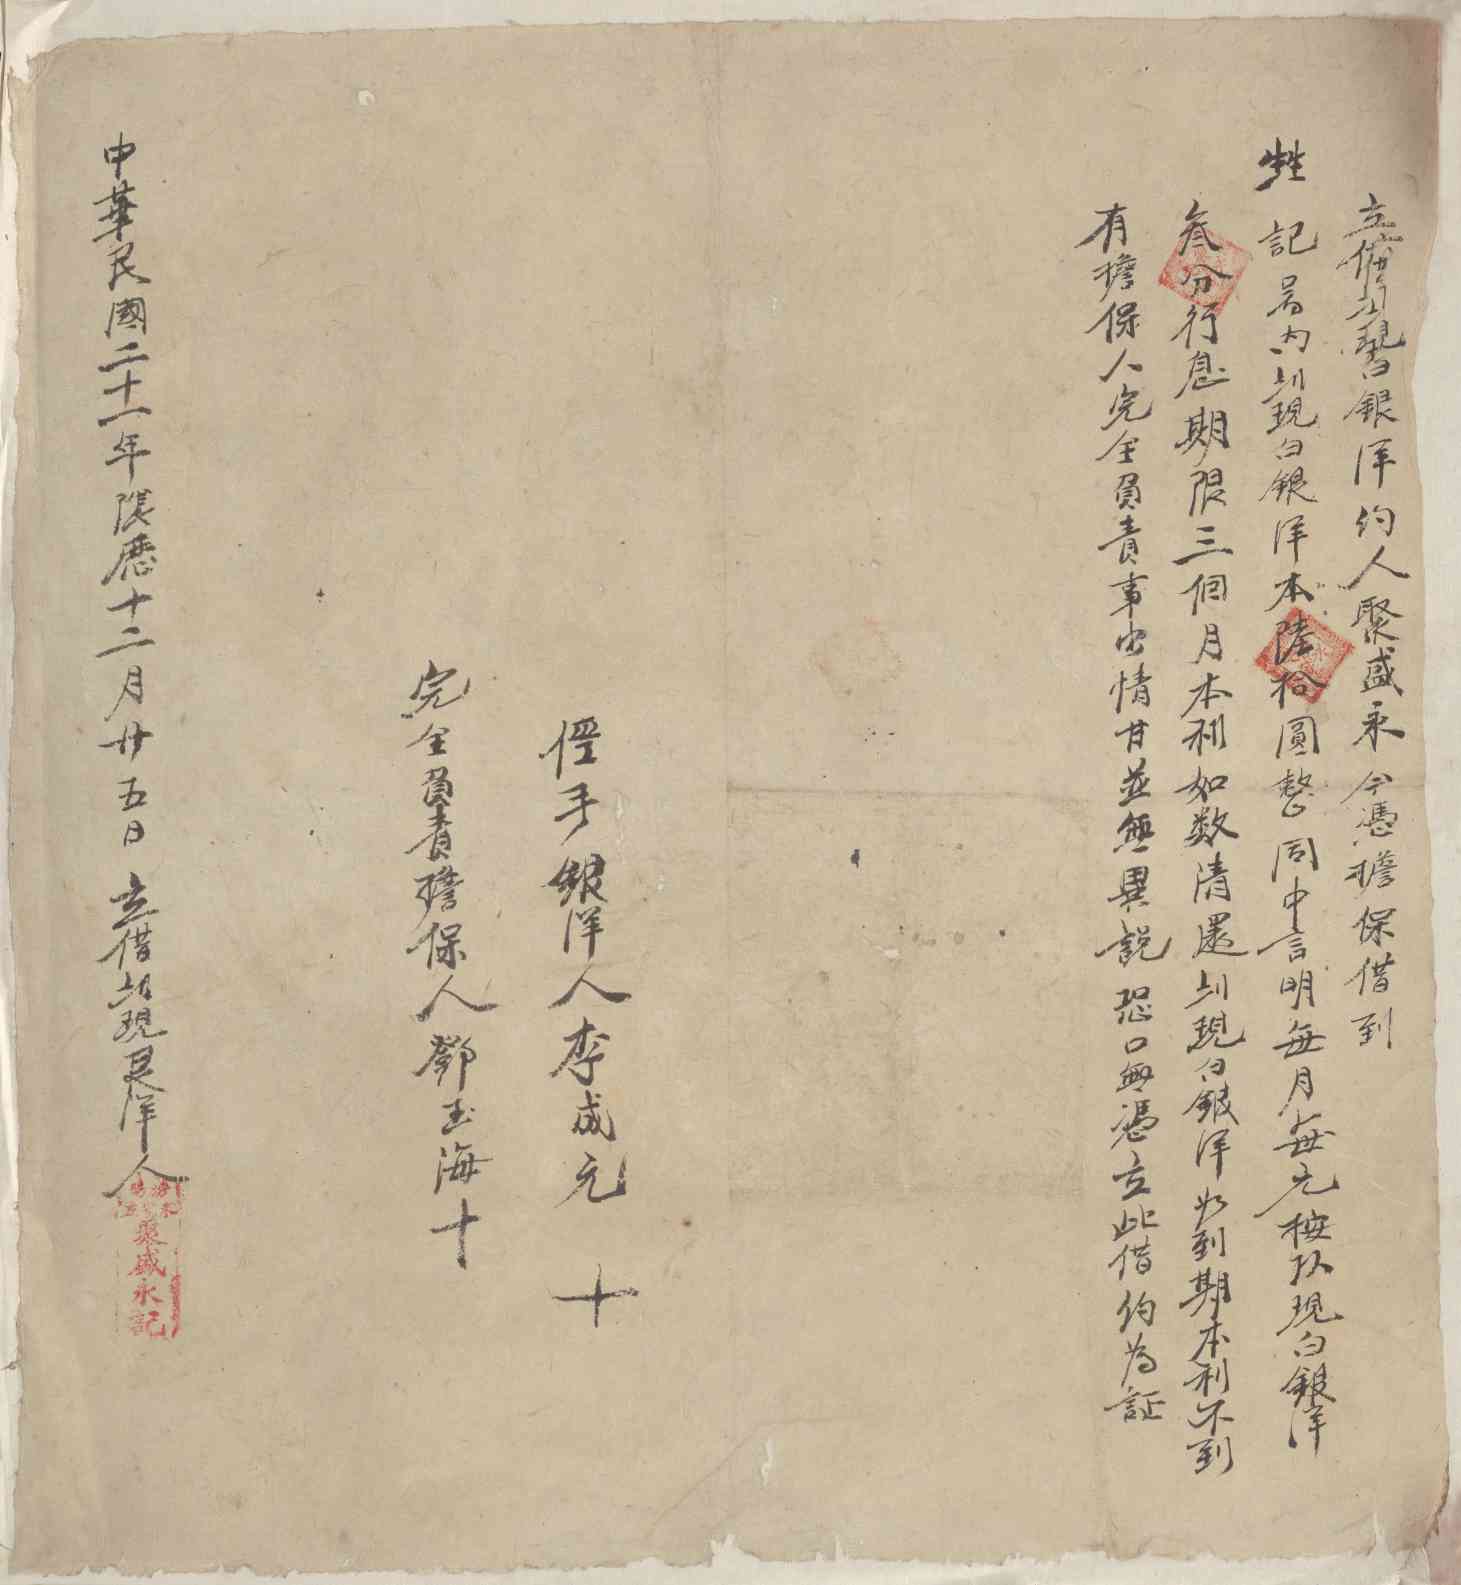 立借到現銀洋約人聚盛永今憑擔保借到
甡記名內到現白銀洋本陸拾圓整同中言明每月每元按以現白銀洋
叁分行息期限三個月本利如数清還到現白銀洋如到期本利不到
有擔保人完全負責事出情甘並無異説恐口無憑立此借約為証
經手銀洋人李成元十
完全負責擔保人鄧玉海十
中華民國二十一年陰厯十二月廿五日立借到現艮洋人
聚盛永記